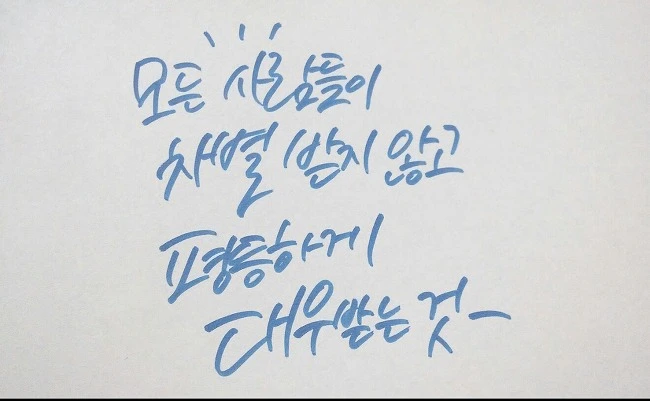 모든 사람들이
차별 받지 않고
평등하게
대우받는 것